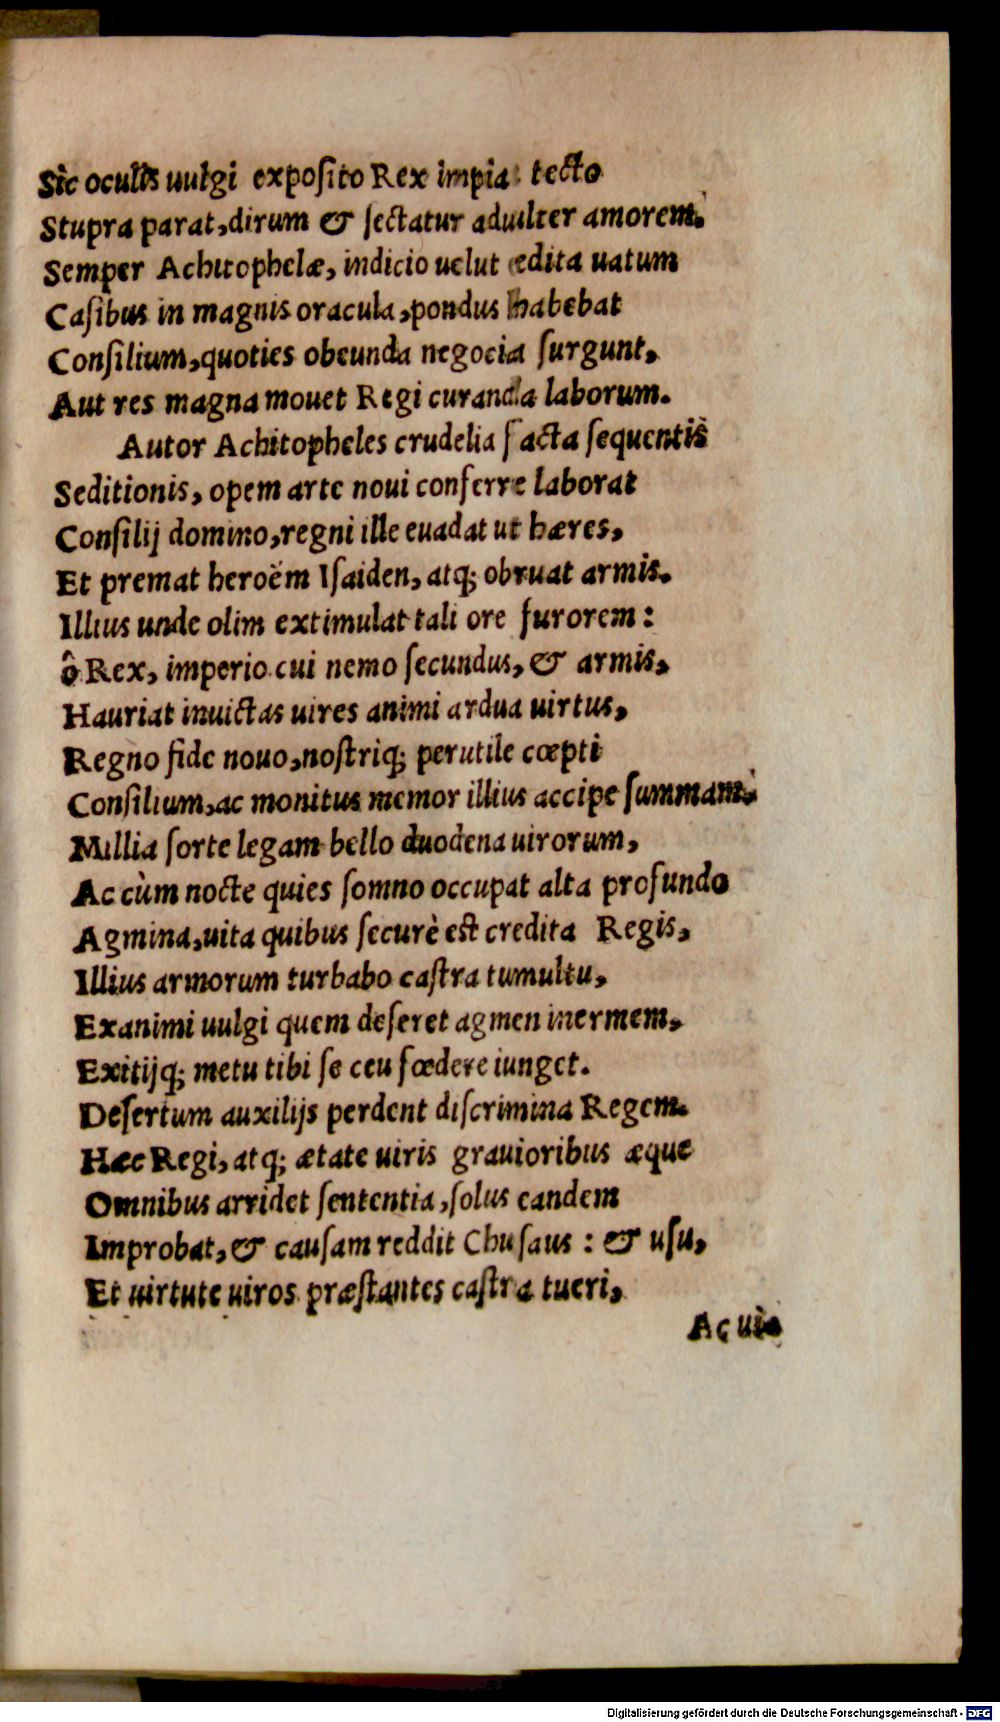 Sic oculis uulgi exposito Rex impia tecto
Stupra parat, dirum & sectatur adulter amorem.
Semper Achitophelæ, indicio uelut edita uatum
Casibus in magnis oracula, pondus habebat
Consilium, quoties obeunda negocia surgunt,
Aut res magna mouet Regi curanda laborum.
Autor Achitopheles crudelia facta sequentis
Seditionis, opem arte noui conferre laborat
Consilij domino, regni ille euadat ut hæres,
Et premat heroëm Isaiden, atq; obruat armis.
Illius unde olim extimulat tali ore furorem:
ô Rex, imperio cui nemo secundus, & armis,
Hauriat inuictas uires animi ardua uirtus,
Regno fide nouo, nostriq; perutile cœpti
Consilium, ac monitus memor illius accipe summam.
Millia sorte legam bello duodena uirorum,
Ac cùm nocte quies somno occupat alta profundo
Agmina, uita quibus securè est credita Regis,
Illius armorum turbabo castra tumultu,
Exanimi uulgi quem deseret agmen inermem,
Exitijq; metu tibi se ceu fœdere iunget.
Desertum auxilijs perdent discrimina Regem.
Hæc Regi, atq; ætate uiris grauioribus æque
Omnibus arridet sententia, solus eandem
Improbat, & causam reddit Chusaus: & usu,
Et uirtute uiros præstantes castra tueri,
Ac ui
Digitalisierung gefördert durch die Deutsche Forschungsgemeinschaft - DFG